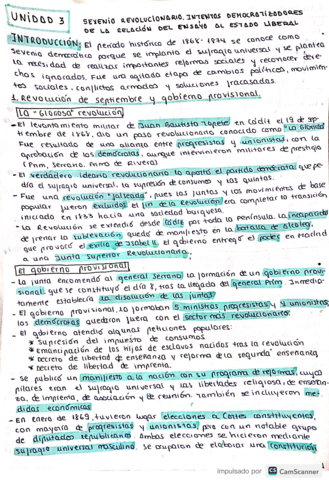 UNIDAD 3
SEXENIO REVOLUCIONARIO. INTENTOS DEMOCRATIZADORES
DE LA REVOLUCIÓN DEL ESTADO LIBERAL
INTRODUCCIÓN: El periodo histórico de 1868-1874 se conoce como
Sexenio democrático porque se implanta el sufragio universal y se plantea
la necesidad de realizar importantes reformas sociales y reconocer dere-
chos ignorados. Fue una agitada etapa de cambios políticos, movimien-
tos sociales, conflictos armados y soluciones fracasadas.
1. Revolución de septiembre y gobierno provisional.
La "Gloriosa" revolución
- El levantamiento militar de Juan Bautista Topete en Cádiz el 19 de sep-
tiembre de 1868, dio un paso revolucionario conocido como "La Gloriosa"
Fue resultado de una alianza entre progresistas y unionistas, con la
aprobación de los demócratas, aunque intervinieron militares de prestigio
(Prim, Serrano.
- El verdadero ideario revolucionario lo aportó el partido demócrata, que pe-
día el sufragio universal, la supresión de consumos y las quintas.
- Fue una revolución "pilteada", pues las juntas y los movimientos de base
popular fueron excluidos. El fin de la Revolución era completar la transición
iniciada en 1833 hacia una sociedad burguesa.
- La Revolución se extendió desde Cádiz por toda la península. La incapacidad
de frenar la sublevación quedó de manifiesto en la batalla de Alcolea,
que provocó el exilio de Isabel II. El gobierno entregó el poder en Madrid
a una Junta Superior Revolucionaria.
El gobierno provisional
- La junta encomendó al general Serrano la formación de un gobierno provi-
sional, que se constituyó el día 8, tras la llegada del general Prim. Inmedia-
tamente establecía la disolución de las juntas
- El gobierno provisional lo formaban 5 ministros progresistas y 4 unionistas,
los demócratas quedaron fuera con el sector más revolucionario.
- El gobierno atendió algunas peticiones populares:
* Supresión del impuesto de consumos
* emancipación de los hijos de esclavos nacidos tras la revolución
* decreto de libertad de enseñanza y reforma de la segunda enseñanza
* decreto de libertad de imprenta.
- Se publicó un manifiesto a la nación con su programa de reformas, cuyos
pilares eran el sufragio universal y las libertades religiosa, de enseñan-
za, de imprenta, de asociación y de reunión. También se incluyeron me-
didas económicas
- En enero de 1869, tuvieron lugar elecciones a Cortes constituyentes,
con mayoría de progresistas y unionistas, pero con un notable grupo
de diputados republicanos. Ambas elecciones se hicieron mediante
sufragio universal masculino. Se ocuparon de elaborar una Constitución
impulsado por CS CamScanner